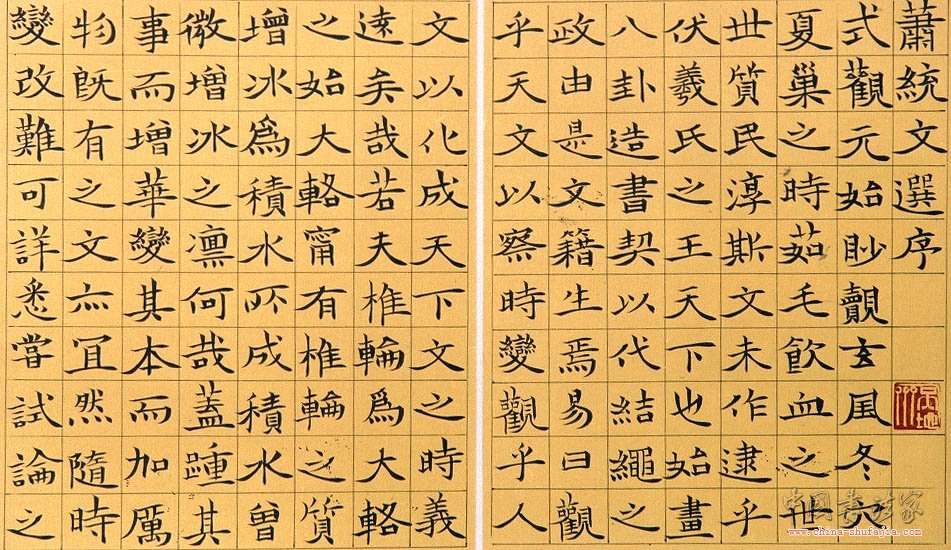 蕭統文選序
式觀元始眇覿玄風冬穴
夏巢之時茹毛飲血之世
世質民淳斯文未作逮乎
伏羲氏之王天下也始畫
八卦造書契以代結繩之
政由是文籍生焉易曰觀
乎天文以察時變觀乎人
文以化成天下文之時義
遠矣哉若夫椎輪爲大輅
之始大輅甯有椎輪之質
增冰爲積水所成積水曾
微增冰之凛何哉蓋踵其
事而增華變其本而加厲
物既有之文亦宜然隨時
變改難可詳悉嘗試論之
中国书法家
www.china-shufajia.com